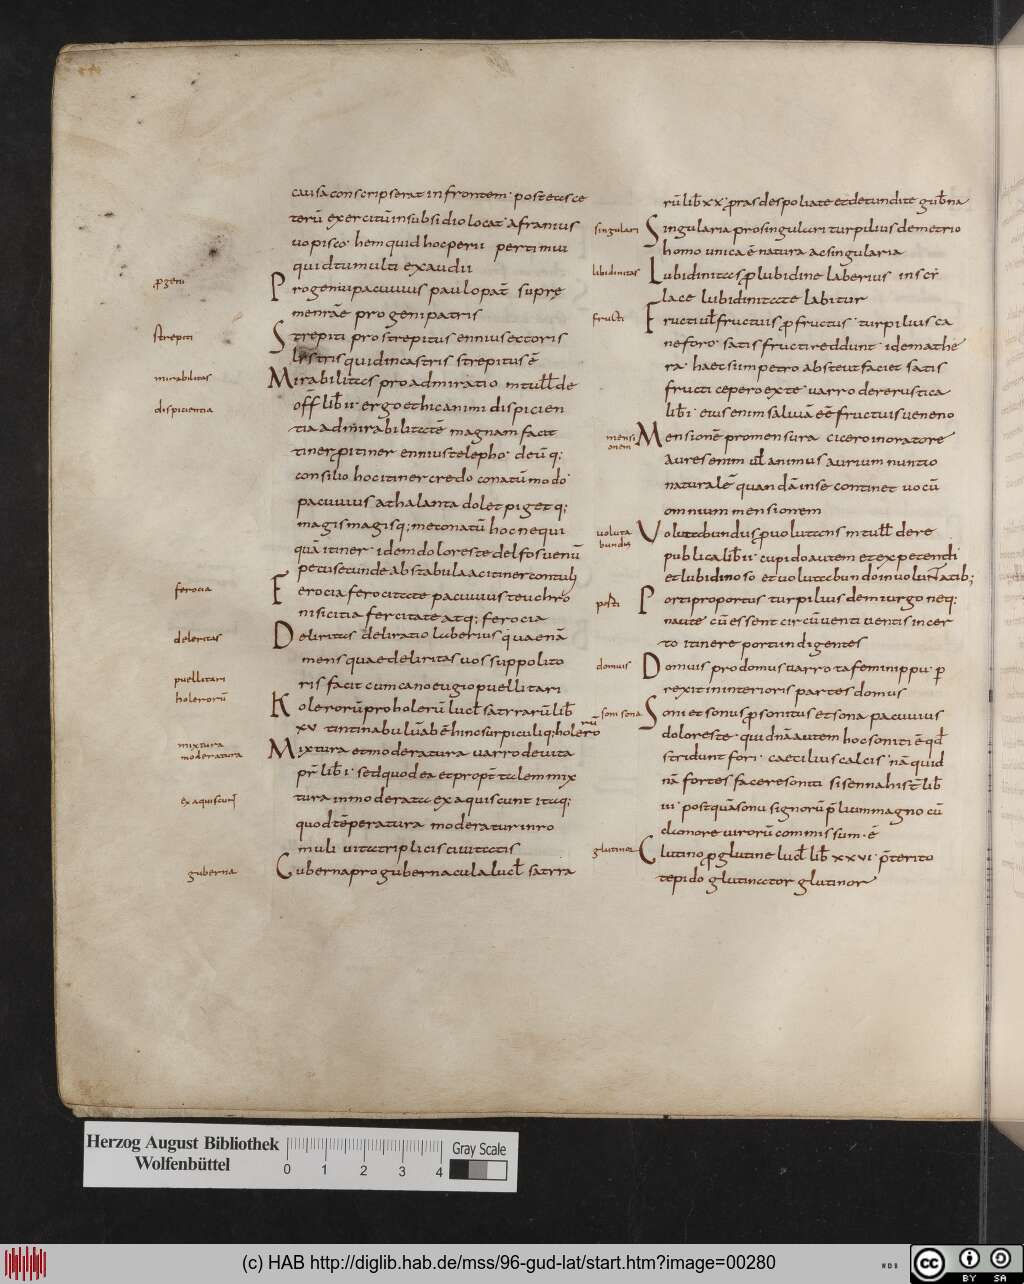 causã conscripserat in frontem· postea sce
terũ exercitũ in subsidio locat· afranius
uopisco· hem quid hoc perii pertimui
quid tumulti exaudii
ꝓgeni
Progenii pacuuius paulo pat̃ supre
menrãe progeni patris
strepiti
Strepiti pro strepitus ennius ectoris
lystris quid in castris strepitus ẽ
mirabilitas
Mirabilitas pro admiratio m tull̃ de
dispicientia
off lib̃ ii· ergo et hic animi dispicien
tia admirabilitatẽ magnam facit
tinerꝓ itiner ennius telepho· deũ q;
consilio hoc itiner credo conatũ modo·
pacuuius athalanta dolet piget q;
magis magisq; me conatũ hoc nequi
quã itiner· idem doloreste delfos uenũ
pecus et unde ab stabula ac itiner contuli
ferocia
Ferocia ferocitate pacuuius teuchro
nisi citia fercitate atq; ferocia
deleritas
Deliritas deliratio laberius qua enã
mens quae deliritas uos suppolito
puellitari
ris facit cum cano eugio puellitari
holerorũ
Kolerorũ pro holerũ lucil̃ satrrarũ lib̃
xv tintinabulũ ab ẽ hinc surpiculiq; holerorũ
mixtura
moderatura
Mixtura et moderatura uarro de uita
pr̃ lib̃ i· sed quod ea et propt̃ talem mix
ex aquiscunt
tura inmoderata ex aquiscunt itaq;
quod tẽperatura moderatur in ro
muli uita triplicis ciuitatis
guberna
Cuberna pro gubernacula lucil̃ satrra
rũ lib̃ xx· ꝓras despoliate et detundite gub̃na
singulari
Singularia pro singulari turpilius demetrio
homo unica ẽ natura ac singularia
libidinitas
Lubidinitas ꝓ lubidine laberius in scr̃
lace lubidinitate labitur
fructi
Fructi ul̃ fructuis ꝓ fructus· turpilius ca
neforo· satis fructi reddunt· idem athe
ra· haet sum petro absteut faciet satis
fructi cepero ex te· uarro dere rustica
lib̃ i· eius enim saluiã eẽ fructuis ueneno
mensi
onem
Mensionẽ pro mensura cicero in oratore
aures enim ul̃ animus aurium nuntio
naturalẽ quandã in se continet uocũ
omnium mensionem
voluta
bundus
Volutabundus ꝓ uolutans m tull̃ de re
publica lib̃ ii· cupido autem et expetendi
et lubidinoso et uolutabundo in uoluntatib;
posti
Porti pro portus turpilius demiurgo neq;
naute cũ essent circũuenti uentis incer
to itinere portundigentes
domuis
Domuis pro domus uarro tafemnippu· p̃
rexit in interioris partes domus
somi sona
Soni et sonus ꝓ sonitus et sona pacuuius
doloreste· quidnã autem hoc soniti ẽ qd̃
stridunt fori· caecilius calcis· nã quid
nã fortes facere sonti sisenna hist̃ lib̃
iii· postquã sonu signorũ p̃lium magno cũ
clamore uirorũ commissum· ẽ
glutinor
Clutino ꝓ glutine lucil̃ lib̃ xxvi· p̃terito
tepido glutinator glutinor
Herzog August Bibliothek
Wolfenbüttel
0 1 2 3 4
Gray Scale
(c) HAB http://diglib.hab.de/mss/96-gud-lat/start.htm?image=00280
WDB
cc BY SA